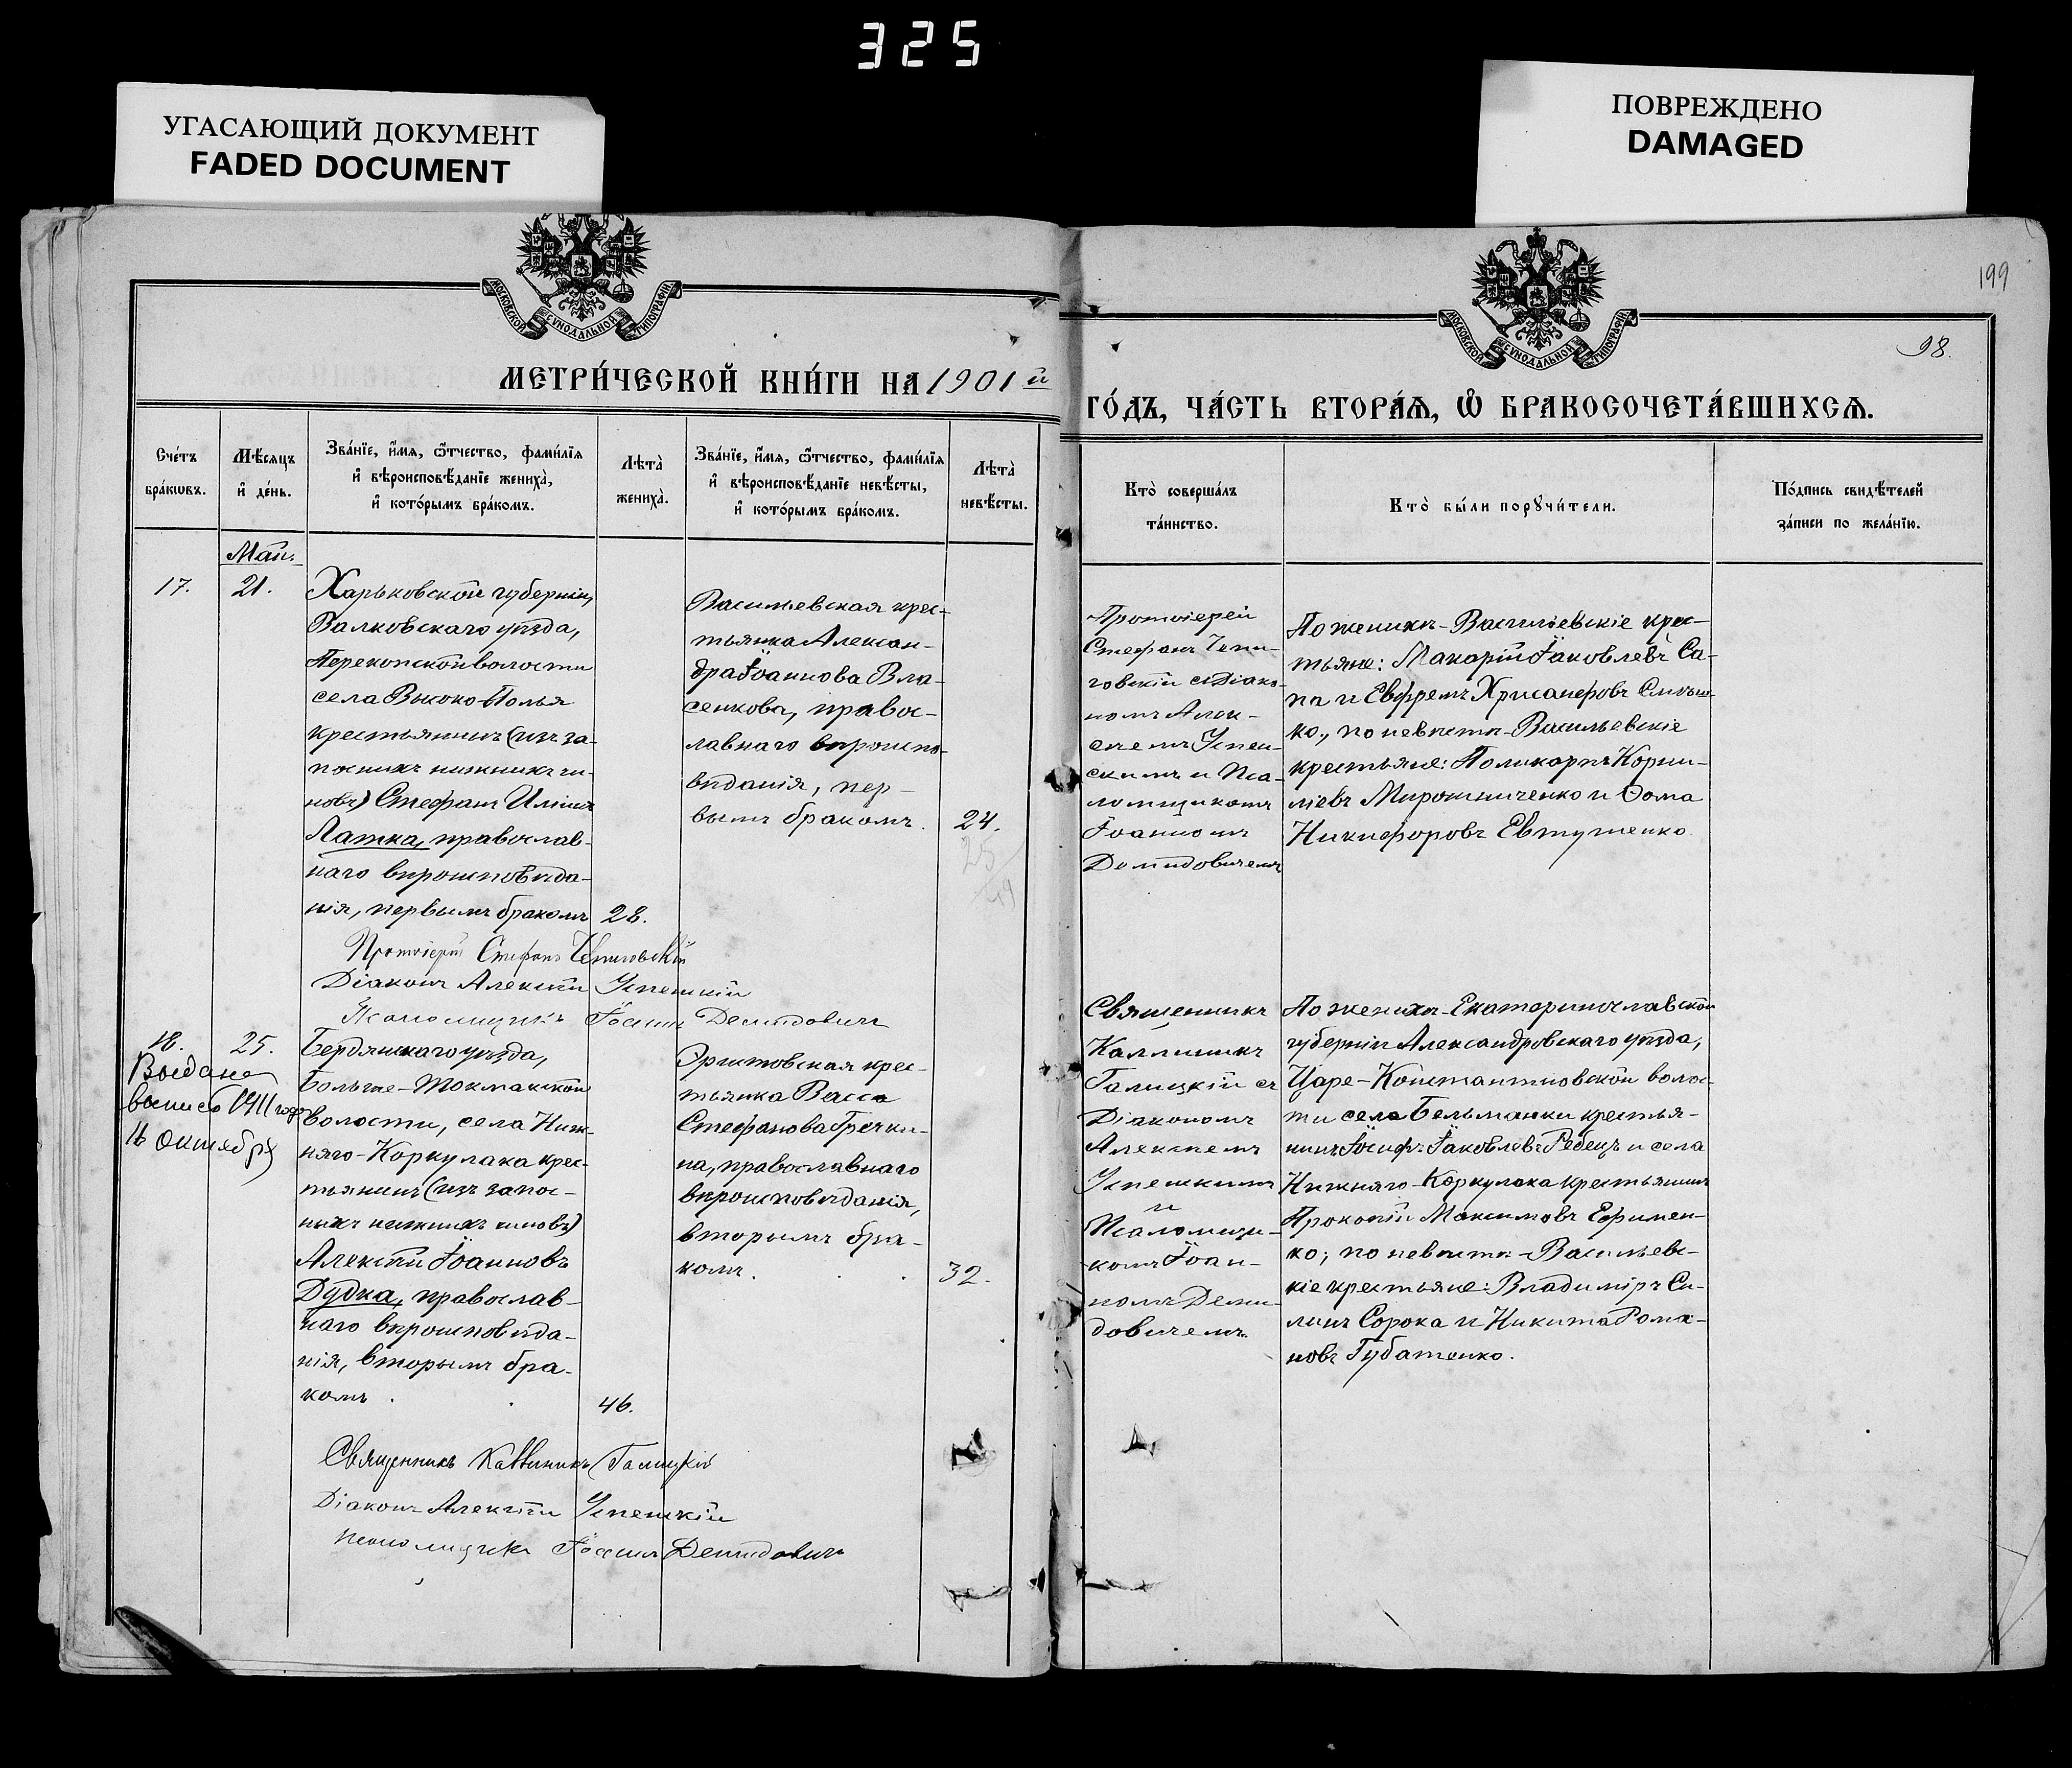 325
УГАСАЮЩИЙ ДОКУМЕНТ
FADED DOCUMENT
ПОВРЕЖДЕНО
DAMAGED
МОСКОВСКОЙ СѴНОДАЛЬНОЙ ТИПОГРАФІИ
МОСКОВСКОЙ СѴНОДАЛЬНОЙ ТИПОГРАФІИ
199
98.
МЕТРИ́ЧЕСКОЙ КНИ́ГИ НА 1901 й
ГО́ДЪ, ЧА́СТЬ ВТОРА́Ѧ, Ѽ БРАКОСОЧЕТА́ВШИХСѦ.
Сче́тъ
бра́кѡвъ.
Мѣ́сяцъ
и҆ де́нь.
Зва́нїе, и҆́мѧ, ѻ҆́тчество, фами́лїѧ
и҆ вѣроисповѣ́данїе жениха̀,
и҆ кото́рымъ бра́комъ.
Лѣта̀
жениха̀.
Зва́нїе, и҆́мѧ, ѻ҆́тчество, фами́лїѧ
и҆ вѣроисповѣ́данїе невѣ́сты,
и҆ кото́рымъ бра́комъ.
Лѣта̀
невѣ́сты.
Кто̀ соверша́лъ
та́инство.
Кто̀ бы́ли порꙋчи́тели.
По́дпись свидѣ́телей
за́писи по жела́нїю.
Май.
17.
21.
Харьковской губерніи,
Валковскаго уѣзда,
Перекопской волости
села Высоко-Полья
крестьянинъ (изъ за-
пасныхъ нижнихъ чи-
новъ) Стефанъ Иліинъ
Латка, православ-
наго вѣроисповѣда-
нія, первымъ бракомъ
28.
Васильевская крес-
тьянка Алексан-
дра Іоаннова Вла-
сенкова, правос-
лавнаго вѣроиспо-
вѣданія, пер-
вымъ бракомъ.
24.
25
Протоіерей
Стефанъ Чепи-
говскій съ Діако-
номъ Алек-
сѣемъ Успен-
скимъ и Пса-
ломщикомъ
Іоанномъ
Демидовичемъ
По женихѣ - Васильевскіе крес-
тьяне: Макарій Іаковлевъ Са-
па и Евфремъ Хрисанфовъ
ко, по невѣстѣ - Васильевскіе
крестьяне: Поликарпъ Корни-
ліевъ Мирошниченко и Ѳома
Никифоровъ Евтушенко.
Протоіерей Стефанъ
Діаконъ Алексѣй Успенскій
Псаломщикъ Іоаннъ Демидовичъ
18.
25.
Выдана
выпись 1911 года
16 Октября
Бердянскаго уѣзда,
Больше-Токмакской
волости, села Ниж-
няго-Коркулака крес-
тьянинъ (изъ запас-
ныхъ нижнихъ чиновъ)
Алексѣй Іоанновъ
Дудка, православ-
наго вѣроисповѣда-
нія, вторымъ бра-
комъ.
46.
Эристовская крес-
тьянка Васса
Стефанова Гречки-
на, православнаго
вѣроисповѣданія,
вторымъ бра-
комъ.
32.
Священникъ
Каллиникъ
Галицкій съ
Діакономъ
Алексѣемъ
Успенскимъ
и
Псаломщи-
комъ Іоан-
номъ Деми-
довичемъ.
По женихѣ - Екатеринославской
губерніи Александровскаго уѣзда,
Царе-Константиновской волос-
ти села Бельманки крестья-
нинъ Іосифъ Іаковлевъ Ребецъ и села
Нижняго-Коркулака крестьянинъ
Прокопій Максимовъ Ефимен-
ко; по невѣстѣ - Васильевс-
кіе крестьяне: Владиміръ Си-
линъ Сорока и Никита Рома-
новъ Губатенко.
Священникъ Каллиникъ Галицкій
Діаконъ Алексѣй Успенскій
Псаломщикъ Іоаннъ Демидовичъ